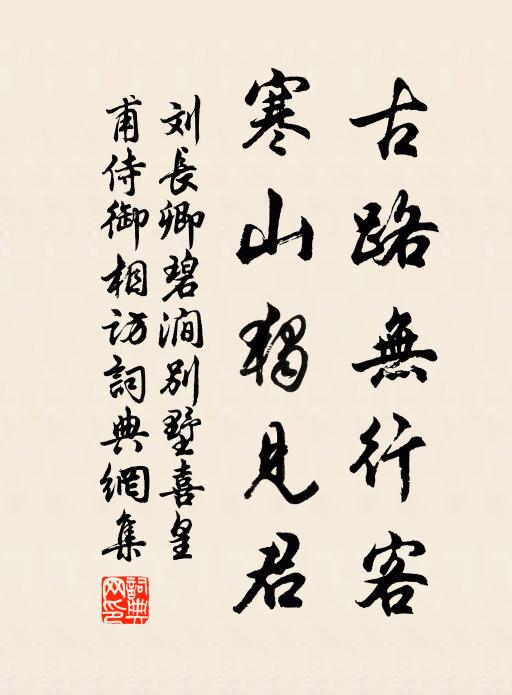 古路無行客
寒山獨見君
刘長卿碧澗別墅喜皇
甫侍御相访詞典網集
詞典網印